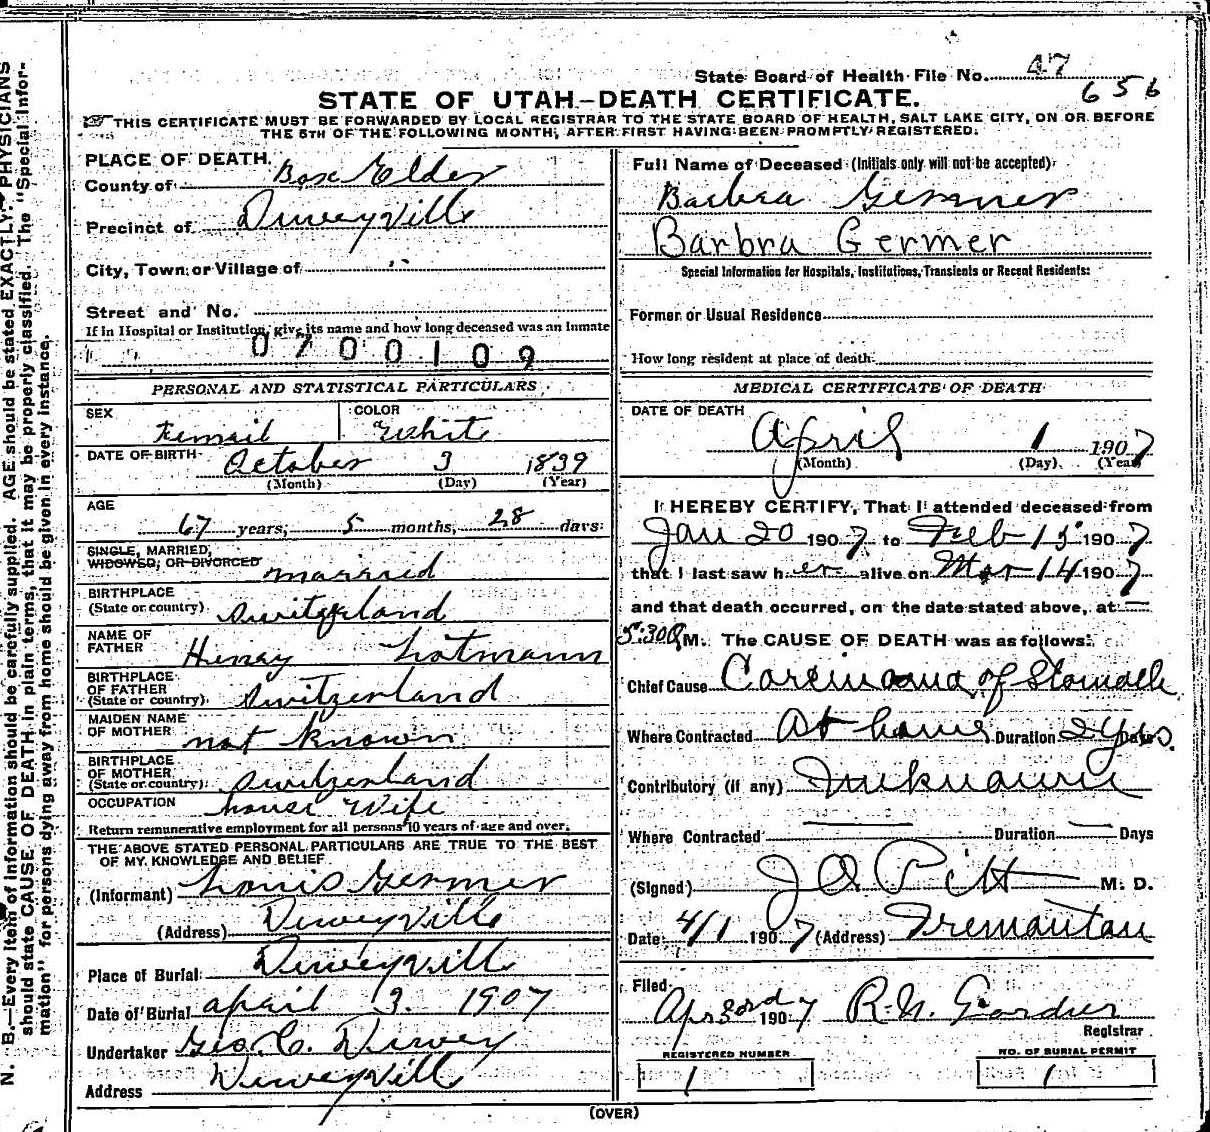 State Board of Health File No. 47
656
STATE OF UTAH—DEATH CERTIFICATE.
THIS CERTIFICATE MUST BE FORWARDED BY LOCAL REGISTRAR TO THE STATE BOARD OF HEALTH, SALT LAKE CITY, ON OR BEFORE
THE 5TH OF THE FOLLOWING MONTH, AFTER FIRST HAVING BEEN PROMPTLY REGISTERED.
PLACE OF DEATH.
County of Box Elder
Precinct of Deweyville
City, Town or Village of "
Street and No.
If in Hospital or Institution, give its name and how long deceased was an Inmate
0700109
PERSONAL AND STATISTICAL PARTICULARS
SEX Femail
COLOR White
DATE OF BIRTH October 3 1839
(Month) (Day) (Year)
AGE
67 years, 5 months, 28 days
SINGLE, MARRIED,
WIDOWED, OR DIVORCED married
BIRTHPLACE
(State or country) Switzerland
NAME OF
FATHER Henry Hotmann
BIRTHPLACE
OF FATHER
(State or country) Switzerland
MAIDEN NAME
OF MOTHER not known
BIRTHPLACE
OF MOTHER
(State or country) Switzerland
OCCUPATION house Wife
Return remunerative employment for all persons 10 years of age and over.
THE ABOVE STATED PERSONAL PARTICULARS ARE TRUE TO THE BEST
OF MY KNOWLEDGE AND BELIEF
(Informant) Louis Germer
(Address) Deweyville
Place of Burial Deweyville
Date of Burial april 3. 1907
Undertaker Geo. C. Dewey
Address Deweyville
Full Name of Deceased (Initials only will not be accepted)
Barbra Germer
Barbra Germer
Special Information for Hospitals, Institutions, Transients or Recent Residents:
Former or Usual Residence
How long resident at place of death
MEDICAL CERTIFICATE OF DEATH
DATE OF DEATH
April 1 1907
(Month) (Day) (Year)
I HEREBY CERTIFY, That I attended deceased from
Jan 20 1907 to Feb 15 1907
that I last saw her alive on Mar 14 1907
and that death occurred, on the date stated above, at
5:30 M. The CAUSE OF DEATH was as follows:
Chief Cause Carcinoma of Stomach
Where Contracted At home Duration 2 yrs. Days
Contributory (if any) Unknown
Where Contracted Duration Days
(Signed) J A Pitt M. D.
Date 4/1 1907 (Address) Tremontau
Filed
Apr 3rd 1907 R. N. Gardner
Registrar
REGISTERED NUMBER
1
NO. OF BURIAL PERMIT
1
(OVER)
N. B.—Every item of Information should be carefully supplied. AGE should be stated EXACTLY. PHYSICIANS
should state CAUSE OF DEATH in plain terms, that it may be properly classified. The "Special Infor-
mation" for persons dying away from home should be given in every instance.